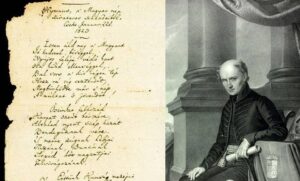 Hymnus, a' Magyar nép
zivataros századaiból.
Cseke
1823
Isten áldd meg a' Magyart
Jó kedvvel, bőséggel,
Nyújts feléje védő kart
Ha küzd ellenséggel;
Bal sors a' kit régen tép
Hozz rá víg esztendőt
Megbűnhődte már e' nép
A' multat 's jövendőt!
Őseinket felhozád
Kárpát szent bérczére
Általad nyert szép hazát
Bendegúznak vére
'S merre zúgnak habjai
Tiszának, Dunának
Árpád hős magzatjai
Felvirágozának.
Értünk Kunság mezejin